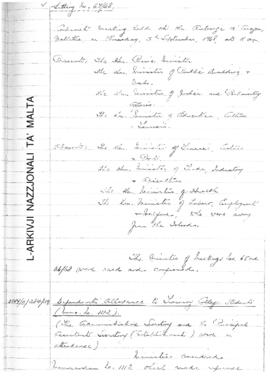 Sitting No. 67/68.
Cabinet meeting held at the Auberge
Valletta on Thursday, 5th September, 1968, at 9 a.m.
Present: The Hon. Prime Minister
The Hon. Minister of Public Building &
Works
The Hon. Minister of Justice and Parliamentary
Affairs
The Hon. Minister of Education, Culture
& Tourism
Absent: The Hon. Minister of Finance, Customs
& Port
The Hon. Minister of Trade, Industry
& Agriculture
The Hon. Minister of Health
The Hon. Minister of Labour, Employment
& Welfare, who were away
from the Island.
The Minutes of Meetings No. 65 and
66/68 were read and confirmed.
Dependants Allowance to Training College Students
(Memo. No. 1112)
(The Administrative Secretary and the Principal
Assistant Secretary (Establishments) were in
attendance)
Ministers considered
Memorandum No. 1112 which made reference
L-ARKIVJI NAZZJONALI TA' MALTA